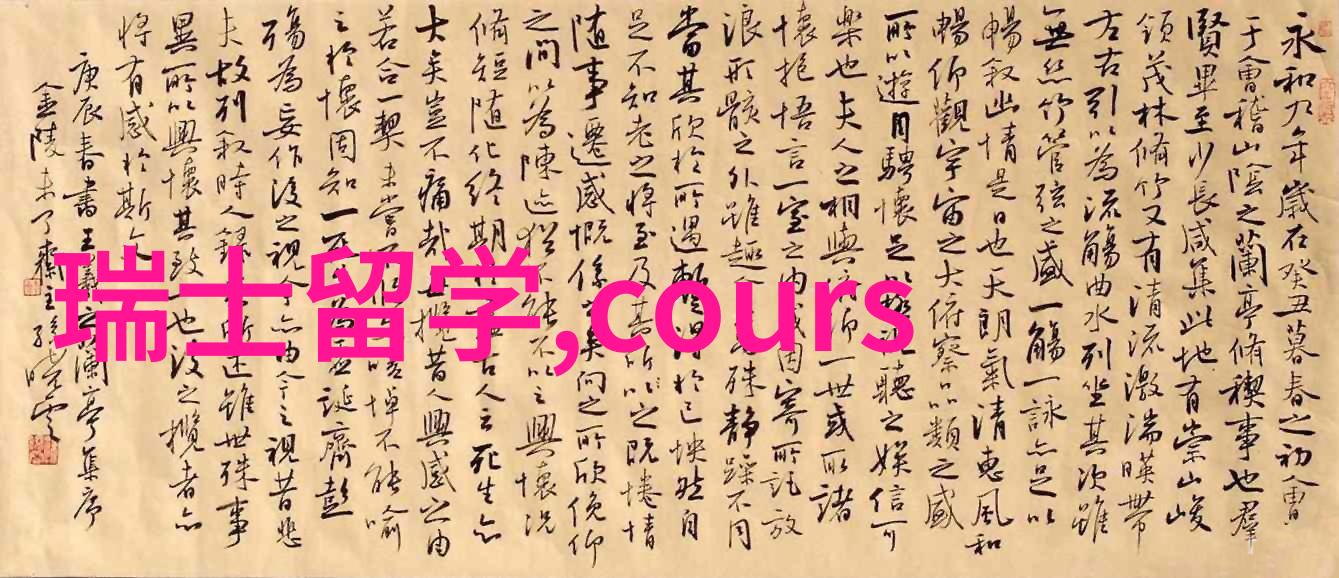 永和九年歲在癸丑暮春之初會
于會稽山陰之蘭亭脩禊事也群
賢畢至少長咸集此地有崇山峻
領茂林脩竹又有清流激湍暎帶
左右引以為流觴曲水列坐其次雖
無絲竹管弦之盛一觴一詠亦足以
暢敘幽情是日也天朗氣清惠風和
暢仰觀宇宙之大俯察品類之盛
所以遊目騁懷足以極視聽之娛信可
樂也夫人之相與俯仰一世或取諸
懷抱悟言一室之內或因寄所託放
浪形骸之外雖趣萬殊靜躁不同
當其欣於所遇暫得於己怏然自
足不知老之將至及其所以之既惓情
随事遷感慨係之矣向之所欣俛仰
之間以為陳迹猶不能不以之興懷況
脩短随化終期於盡古人云死生亦
大矣豈不痛哉攬昔人興感之由
若合一契未嘗不嗟悼不能喻
之於懷固知一死為虛誕齊彭
殤為妄作後之視今亦由今之視昔悲
夫故列敘時人錄其所述雖世殊事
異所以興懷其致也後之攬者亦
將有感於斯文
庚辰春書王羲之蘭亭集序
金陵未了齋主孫曉雲
瑞士留学,cours